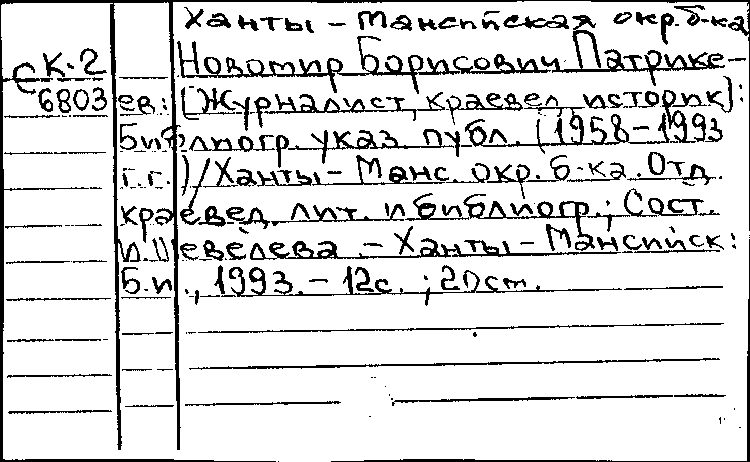 Ханты-Мансийская окр. б-ка
С К-2
6803
Новомир Борисович Патрике-
ев: [Журналист, краевед, историк]:
Библиогр. указ. публ. (1958-1993
г.г.)/Ханты-Манс. окр. б-ка. Отд.
краевед. лит. и библиогр.; Сост.
И.Шевелева.-Ханты-Мансийск:
Б.и., 1993.-12с.; 20см.